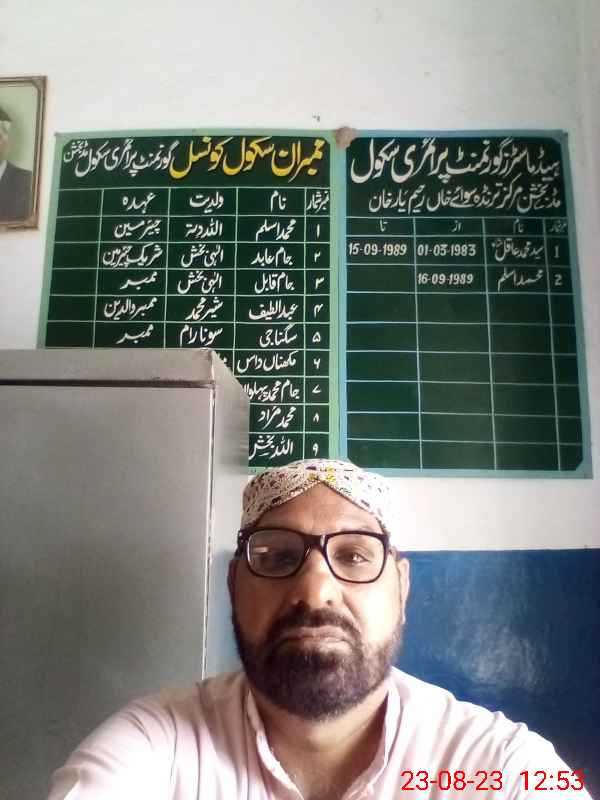 ہیڈ ماسٹرز گورنمنٹ پرائمری سکول
مڈ بخش مرکز ترنڈہ سوائے خاں رحیم یار خان
نمبر شمار نام از تا
1 سید محمد عاقل شاہ 01-03-1983 15-09-1989
2 محمد اسلم 16-09-1989
ممبران سکول کونسل گورنمنٹ پرائمری سکول مڈ بخش
نمبر شمار نام ولدیت عہدہ
۱ محمد اسلم اللہ دتہ چیئرمین
۲ جام عابد الٰہی بخش شریک چیئرمین
۳ جام قابل الٰہی بخش ممبر
۴ عبدالطیف شیر محمد ممبر والدین
۵ سگنا جی سونا رام ممبر
۶ مکھناں داس
۷ جام محمد پہلوان
۸ محمد مراد
۹ اللہ بخش
23-08-23 12:53